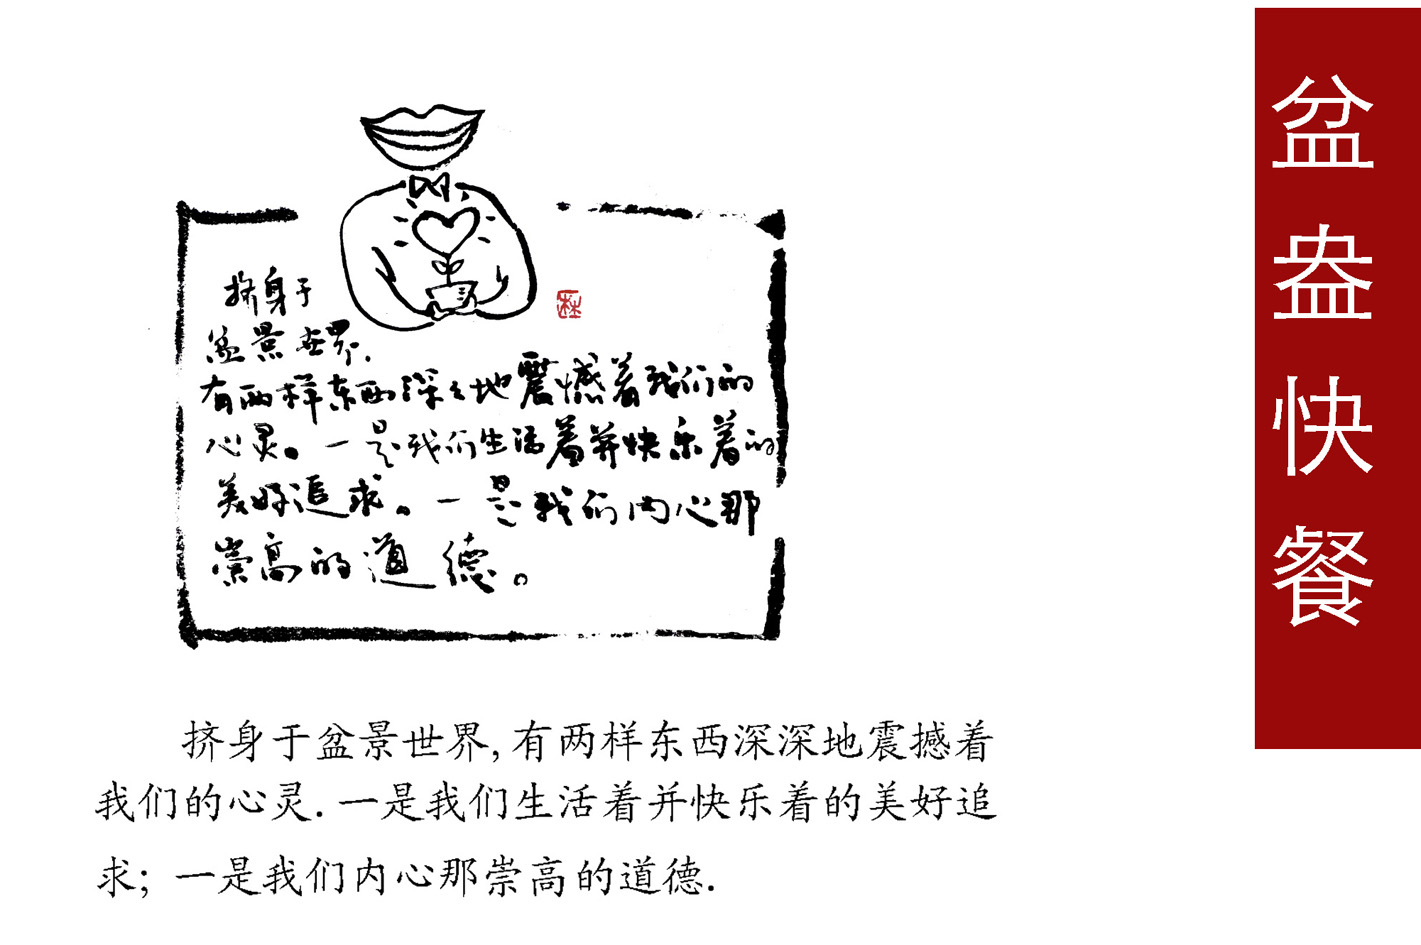 盆盎快餐
挤身于
盆景世界,
有两样东西深々地震憾着我们的
心灵。一是我们生活着并快乐着的
美好追求。一是我们内心那
崇高的道德。
挤身于盆景世界,有两样东西深深地震撼着
我们的心灵.一是我们生活着并快乐着的美好追
求;一是我们内心那崇高的道德.